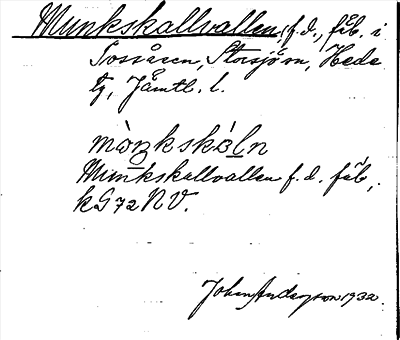 Munkskallvallen, f.d., fäb. i
Tossåsen, Storsjöns, Hede
tg, Jämtl. l.
mòŋkskáln
Munkskallvallen f.d. fäb,
kG 72 NV.
Johan Anderson 1932.